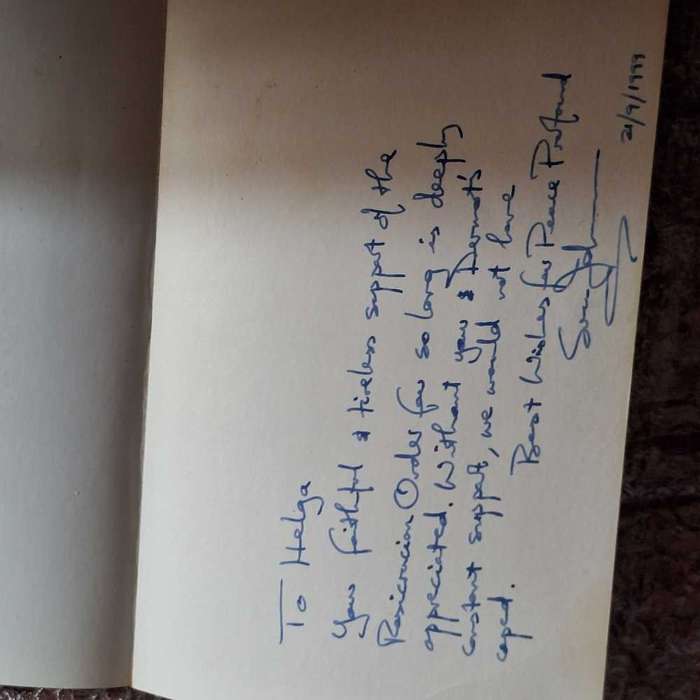 To Helga
Your faithful & tireless support of the
Rosicrucian Order for so long is deeply
appreciated. Without your & Dermot's
constant support, we would not have
coped.
Best Wishes for Peace Profound
21/9/1999